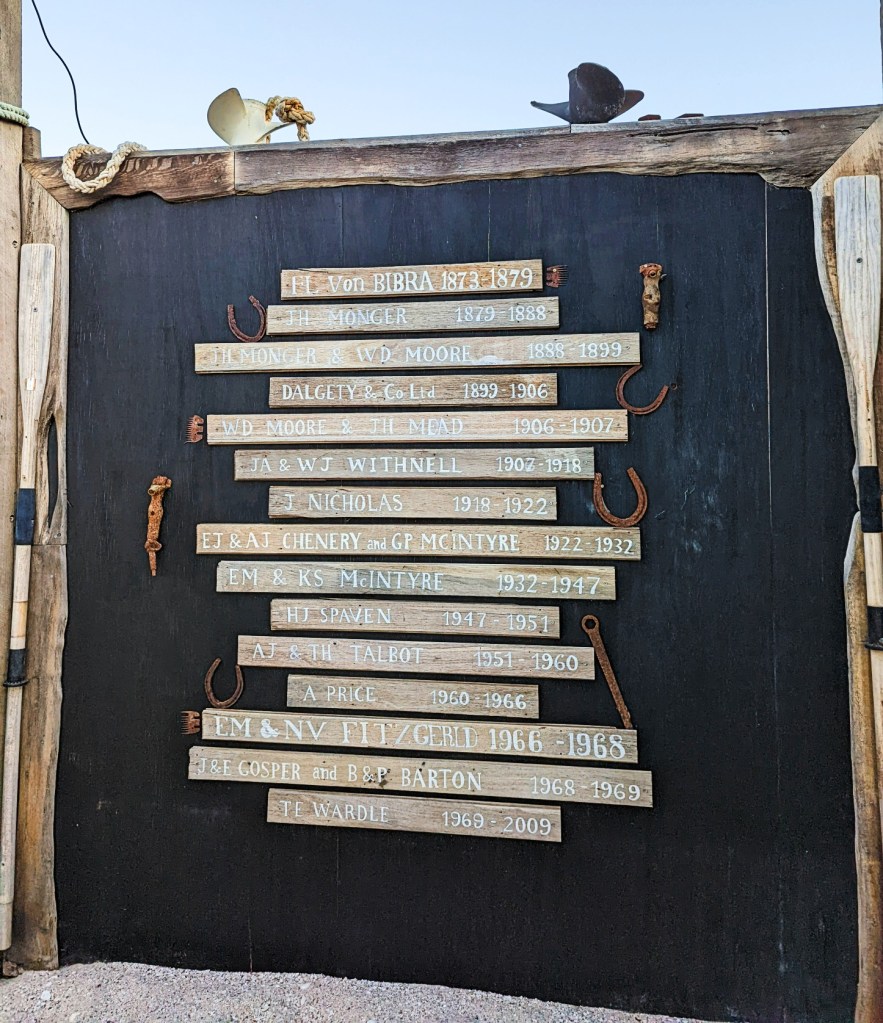 FL Von BIBRA 1873-1879
JH MONGER 1879-1888
JH MONGER & WD MOORE 1888-1899
DALGETY & Co Ltd 1899-1906
WD MOORE & JH MEAD 1906-1907
JA & WJ WITHNELL 1907-1918
J NICHOLAS 1918-1922
EJ & AJ CHENERY and GP MCINTYRE 1922-1932
EM & KS McINTYRE 1932-1947
HJ SPAVEN 1947-1951
AJ & TH TALBOT 1951-1960
A PRICE 1960-1966
EM & NV FITZGERLD 1966-1968
J&E GOSPER and B&P BARTON 1968-1969
TE WARDLE 1969-2009